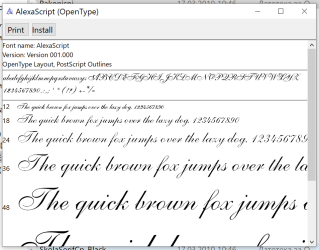 AlexaScript (OpenType)
Print Install
Font name: AlexaScript
Version: Version 001.000
OpenType Layout, PostScript Outlines
abcdefghijklmnopqrstuvwxyz ABCDEFGHIJKLMNOPQRSTUVWXYZ
1234567890
12 The quick brown fox jumps over the lazy dog. 1234567890
18 The quick brown fox jumps over the lazy dog. 1234567890
24 The quick brown fox jumps over the lazy dog. 123456789
36 The quick brown fox jumps over the la
48 The quick brown fox jumps